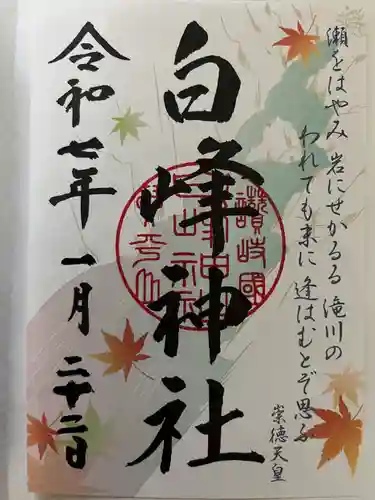 瀬をはやみ 岩にせかるる 滝川の
われても末に 逢はむとぞ思ふ
崇徳天皇
白峰神社
令和七年 一月 二十二日